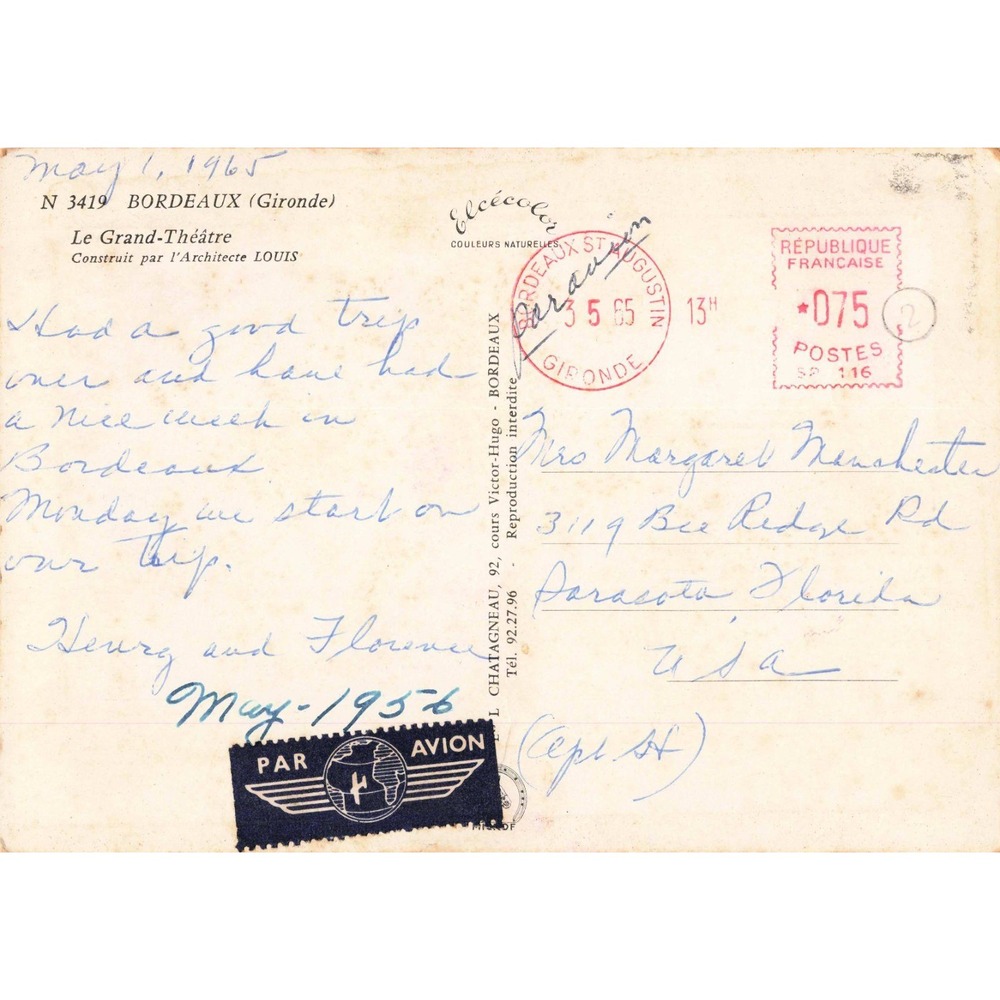 May 1, 1965
N 3419 BORDEAUX (Gironde)
Le Grand-Théâtre
Construit par l'Architecte LOUIS
Had a good trip
over and have had
a nice week in
Bordeaux
Monday we start on
our trip.
Henry and Florence
May-1956
PAR AVION
Elcécolor
COULEURS NATURELLES
L CHATAGNEAU, 92, cours Victor-Hugo - BORDEAUX
Tél. 92.27.96 - Reproduction interdite
Par avion
BORDEAUX ST AUGUSTIN
3 5 65
GIRONDE
13H
RÉPUBLIQUE
FRANÇAISE
*075
POSTES
SP 116
2
Mrs Margaret Manchester
3119 Bee Ridge Rd
Sarasota Florida
USA